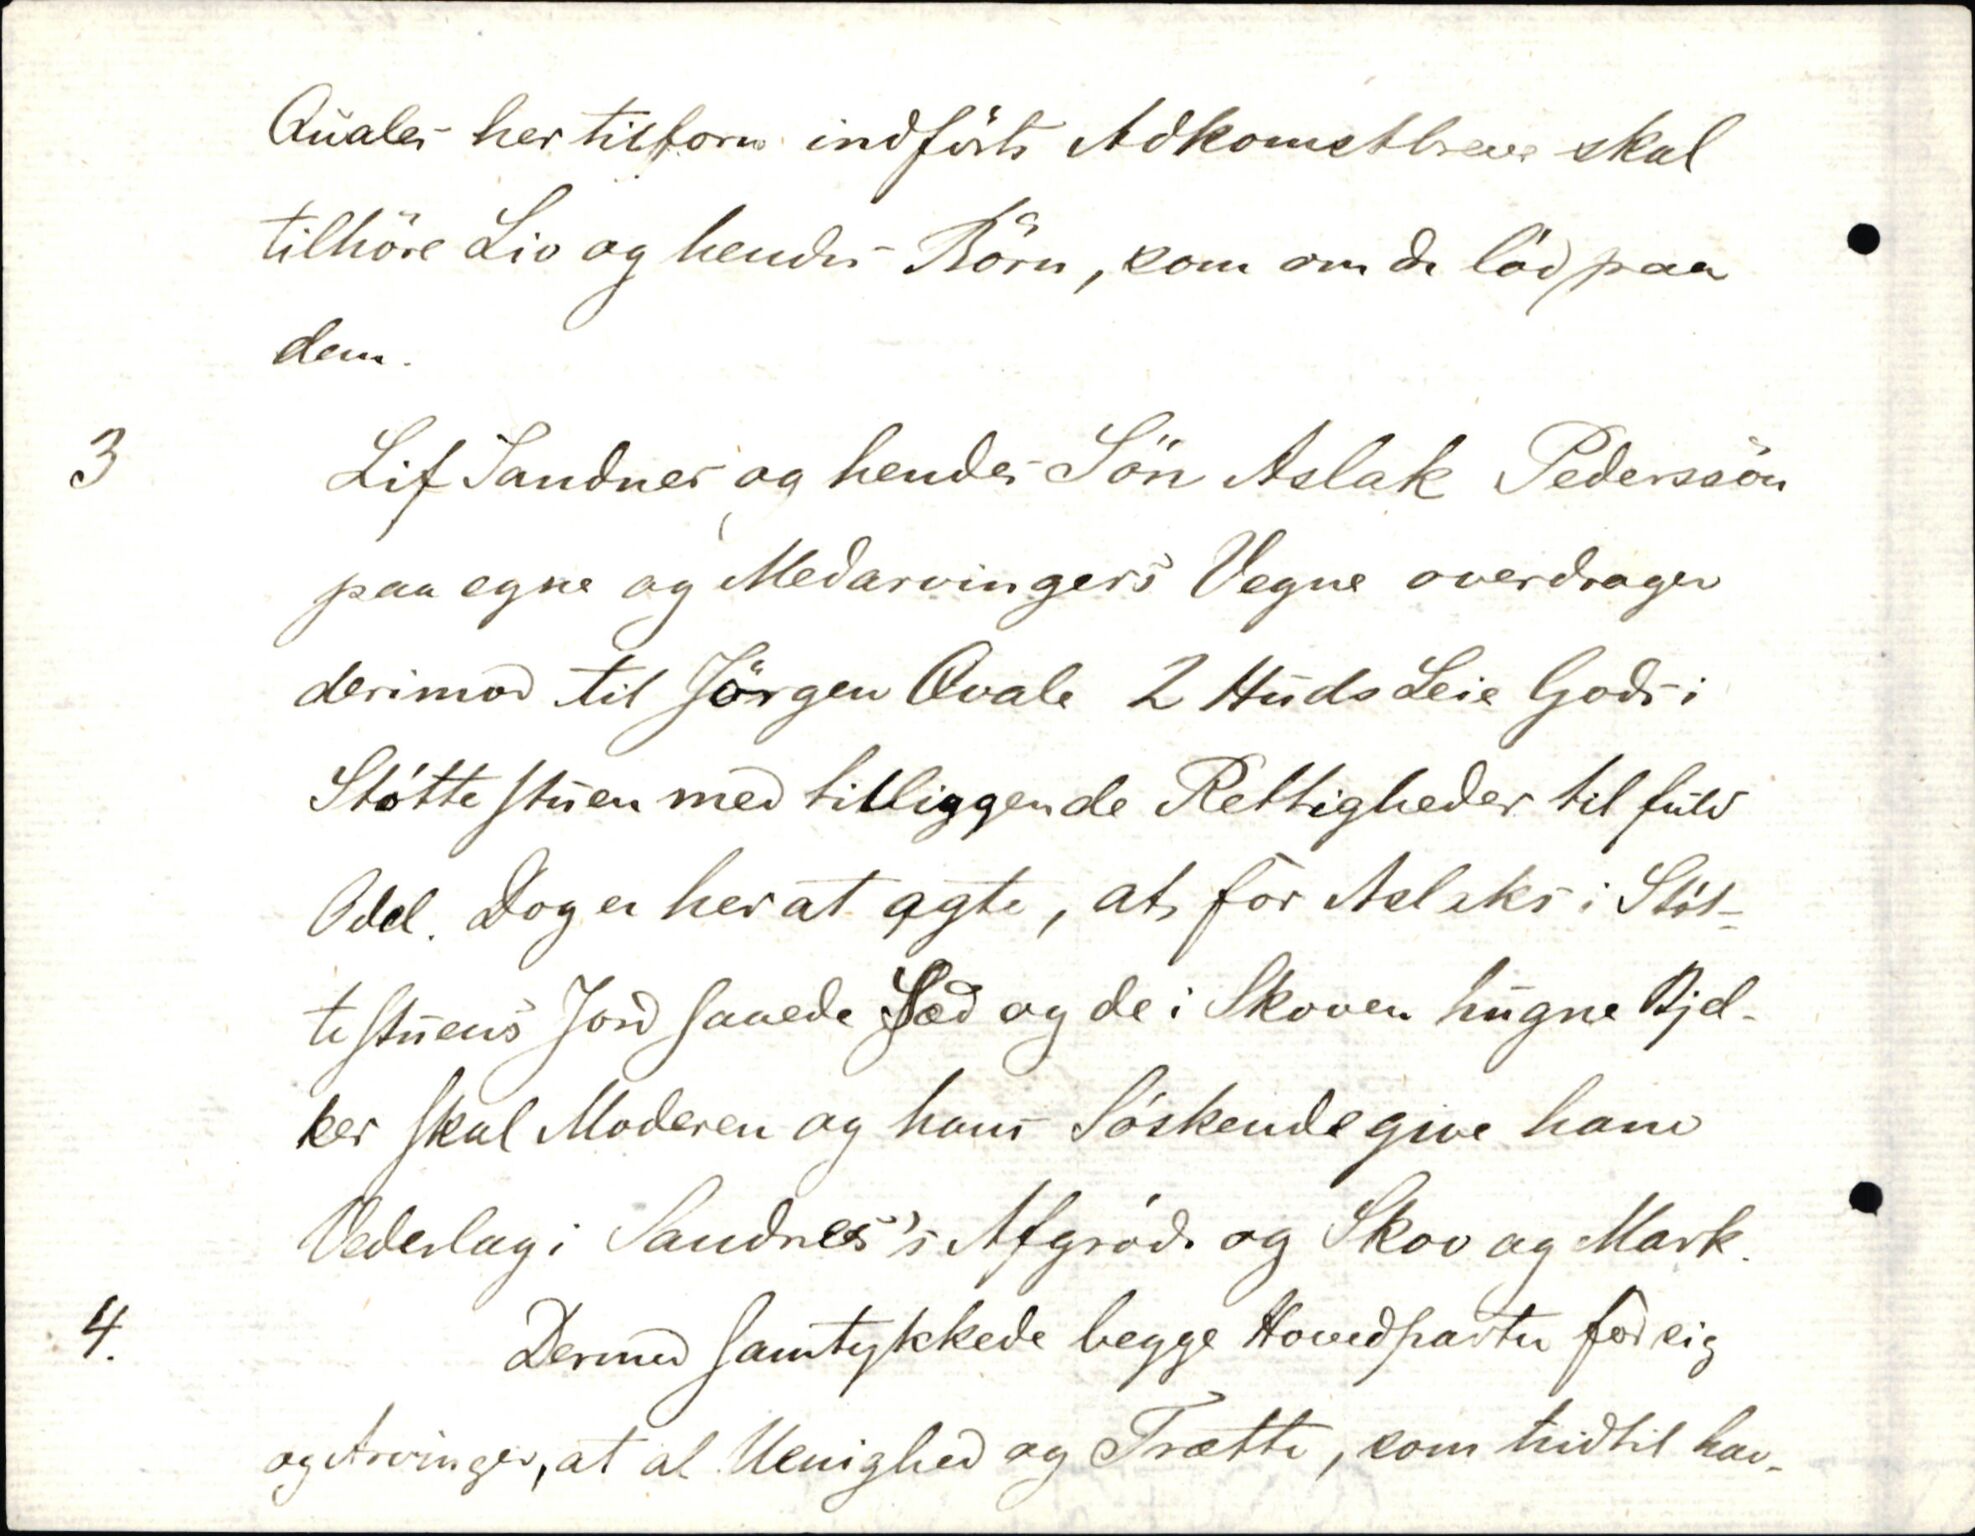 Quales hertilforn indförte Adkomstbreve skal
tilhöre Liv og hendes Börn, som om de löd paa
dem.
3 Lif Sandnes og hendes Sön Aslak Pederssön
paa egne og Medarvingers Vegne overdrager
derimod til Jörgen Qvale 2 Huds Leie Gods i
Støttestuen med tilliggende Rettigheder til fuld
Odel. Dog er herat agte, at for Aslaks i Støt-
testuens Jord saaede Sæd og de i Skoven hugne Bjel-
ker skal Moderen og hans Söskende give ham
Vederlag i Sandnes's Afgröde og Skov og Mark.
4. Dermed samtykkede begge Hovedparter for sig
og Arvinger, at al Uenighed og Trætte, som hidtil hav-